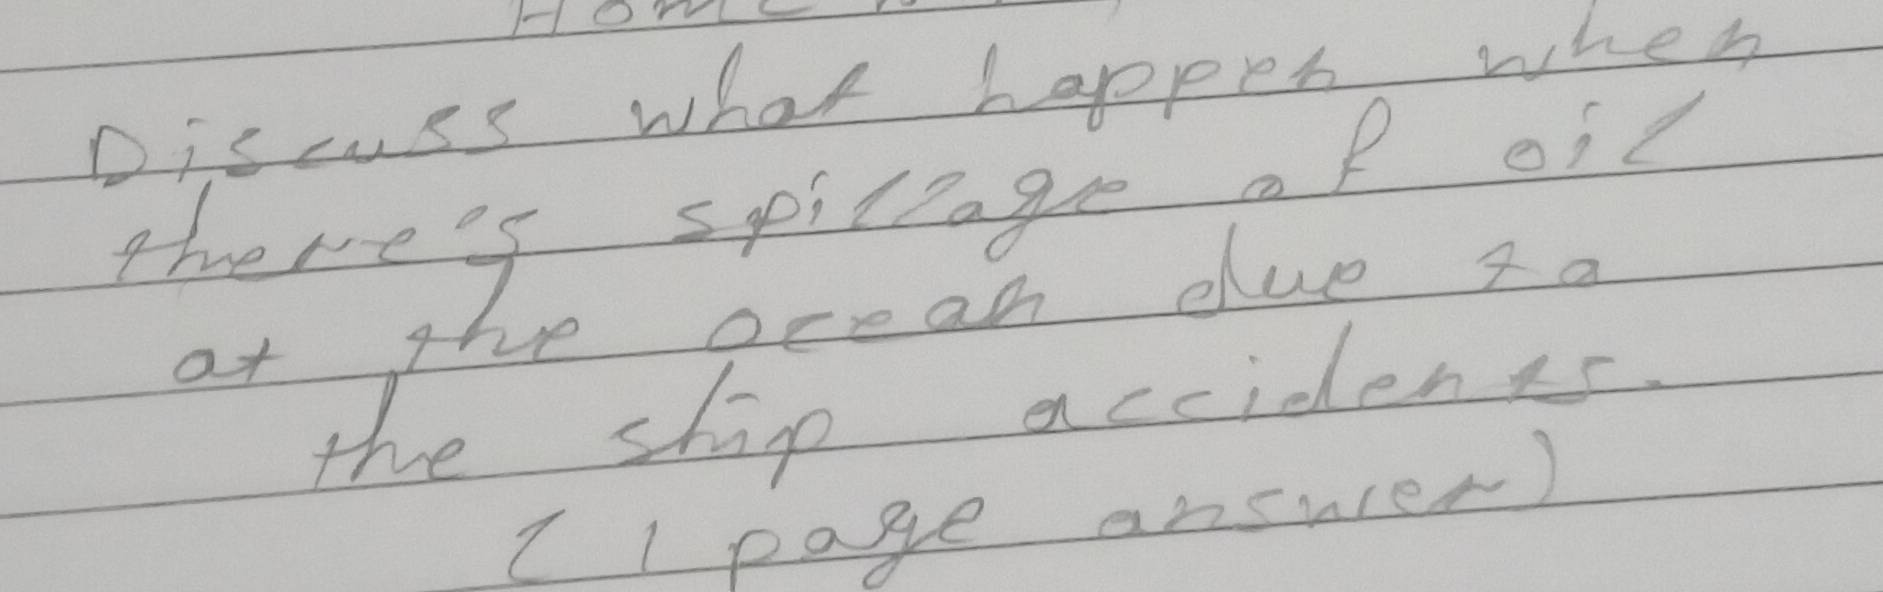 Discuss what happen when
there's spillage of oil
at the ocean due to
the ship accidents.
(1 page answer)